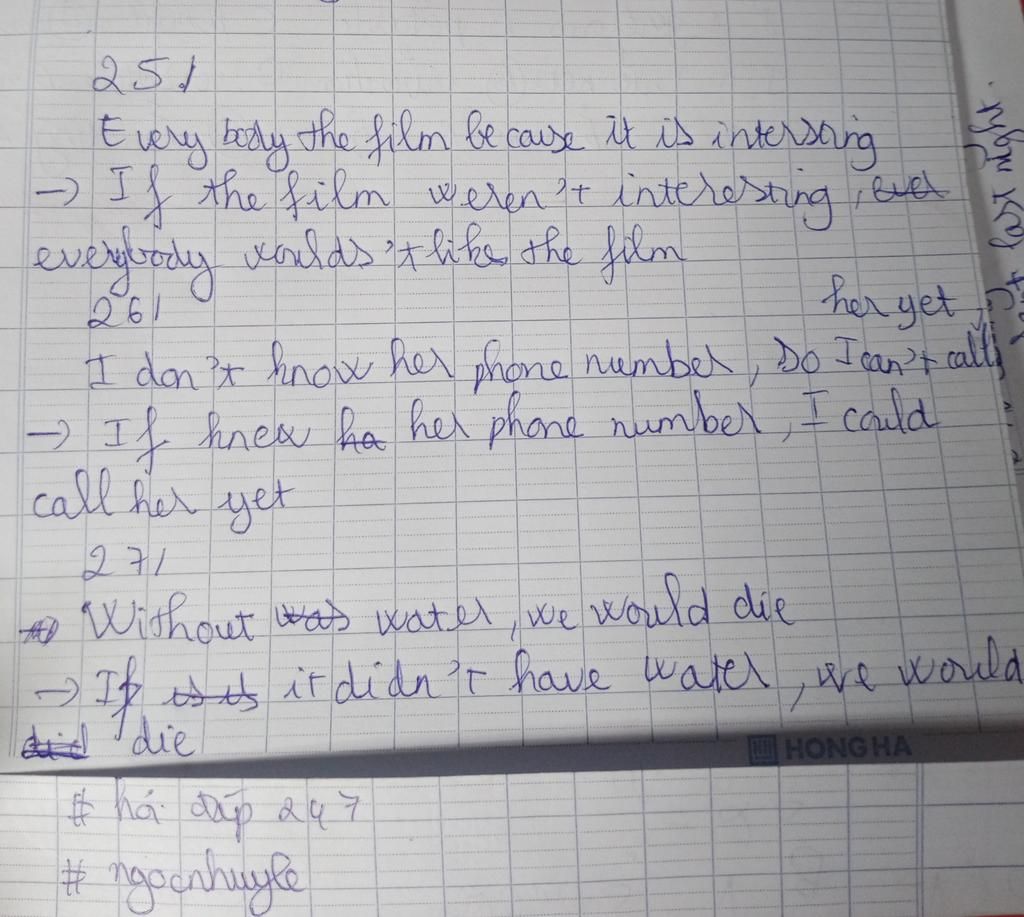 25/
Every body the film because it is intersring
→ If the film weren't interesting, ever
everybody woulds't like the film
26/
her yet
I don't know her phone number, Do I can't call
→ If knew ha her phone number, I could
call her yet
27/
Without was water, we would die
→ If it didn't have water, we would
die
HONG HA
# hỏi đáp 247
# ngocnhuyle